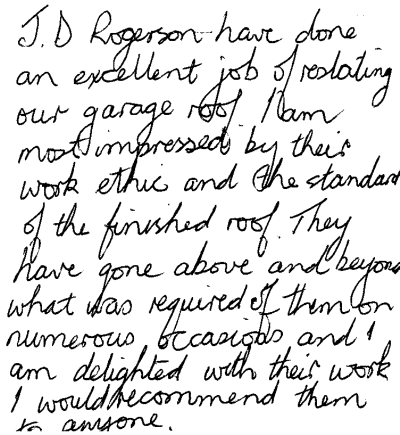 J.D Rogerson have done
an excellent job of reslating
our garage roof. I am
most impressed by their
work ethic and the standard
of the finished roof. They
have gone above and beyond
what was required of them on
numerous occasions and I
am delighted with their work
I would recommend them
to anyone.